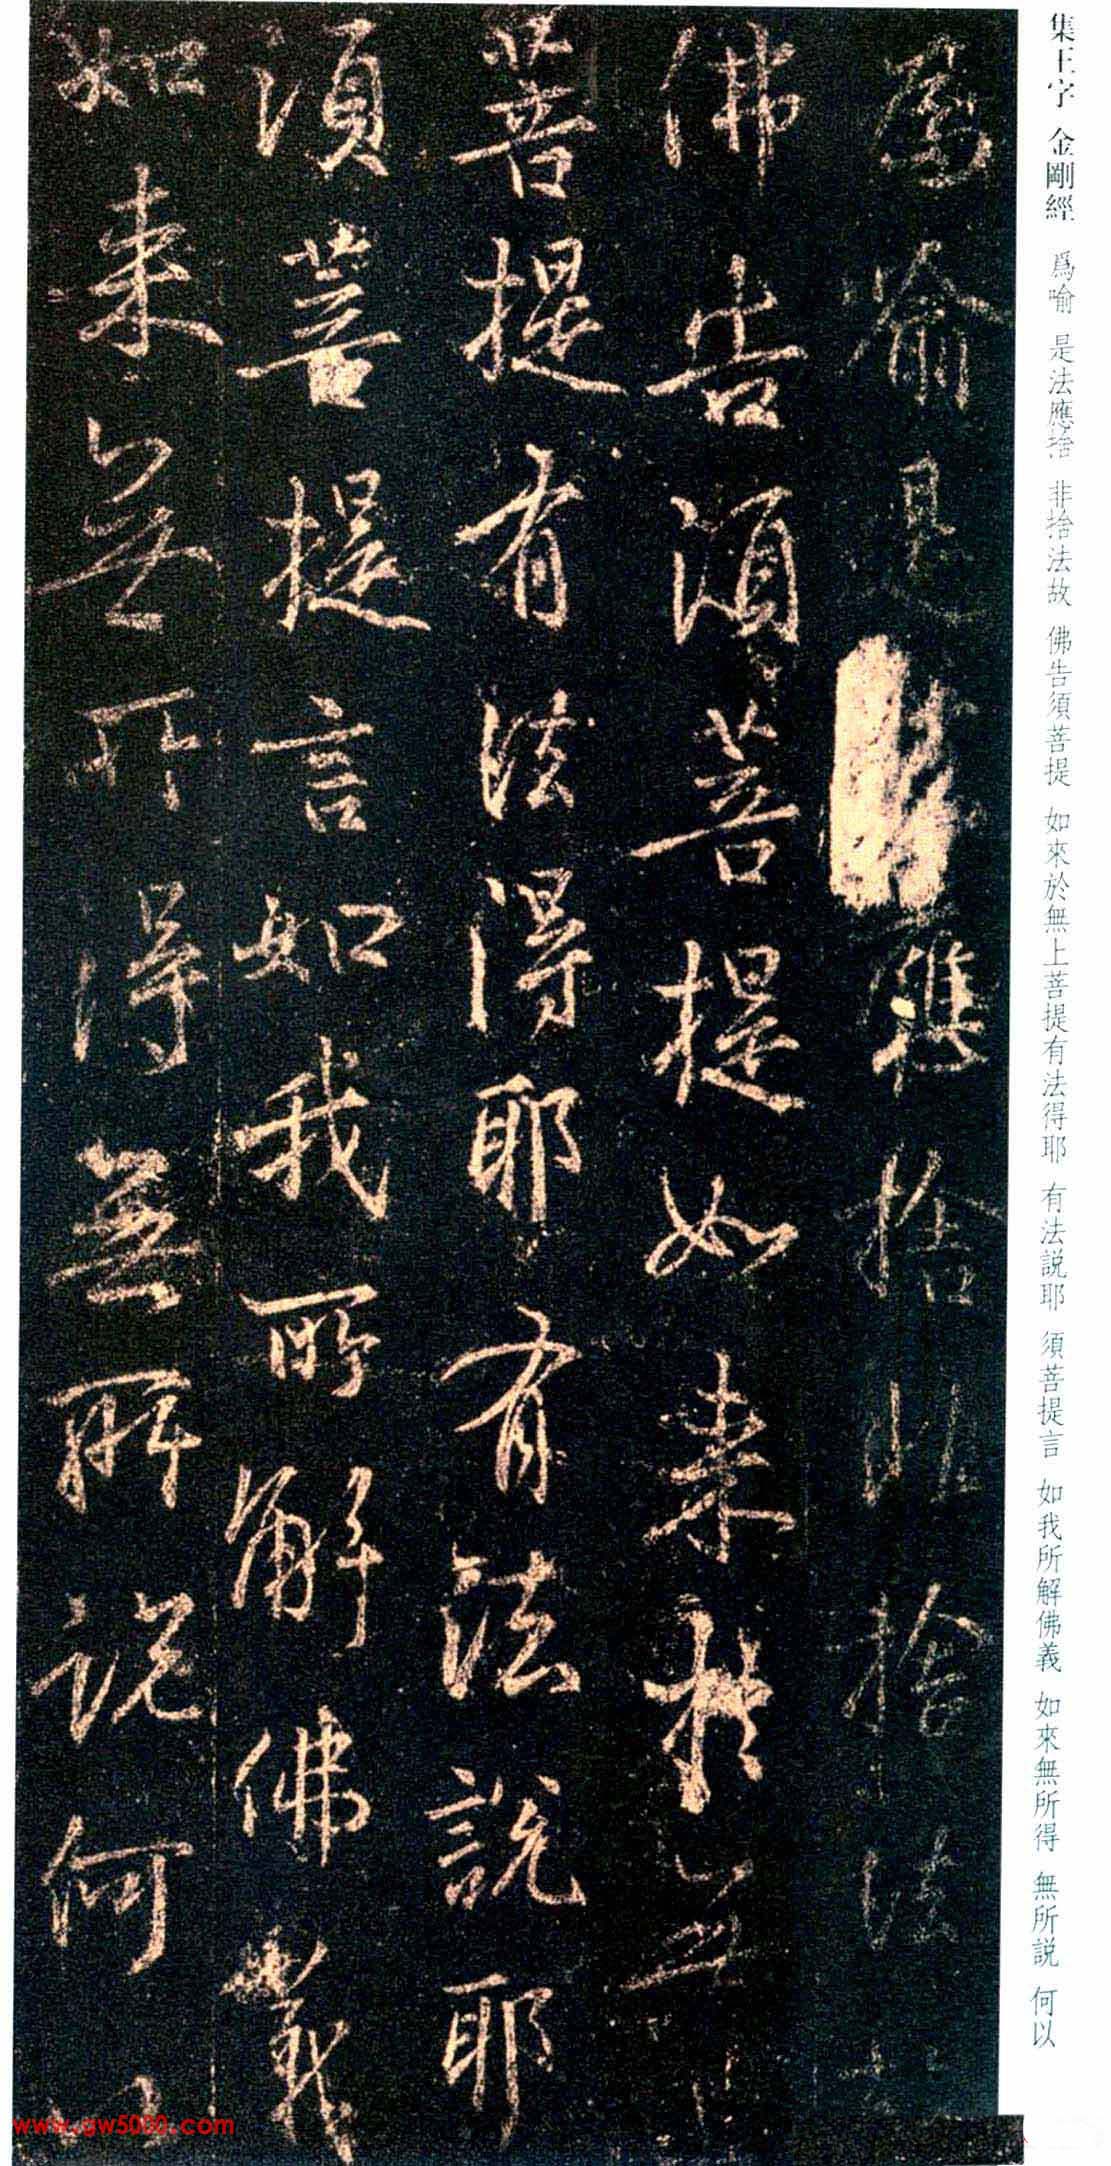 集王字 金剛經 爲喻 是法應捨 非捨法故 佛告須菩提 如來於無上菩提有法得耶 有法説耶 須菩提言 如我所解佛義 如來無所得 無所説 何以
爲喻是法應捨非捨法故
佛告須菩提如來於無上
菩提有法得耶有法說耶
須菩提言如我所解佛義
如來無所得無所說何以
www.gw5000.com